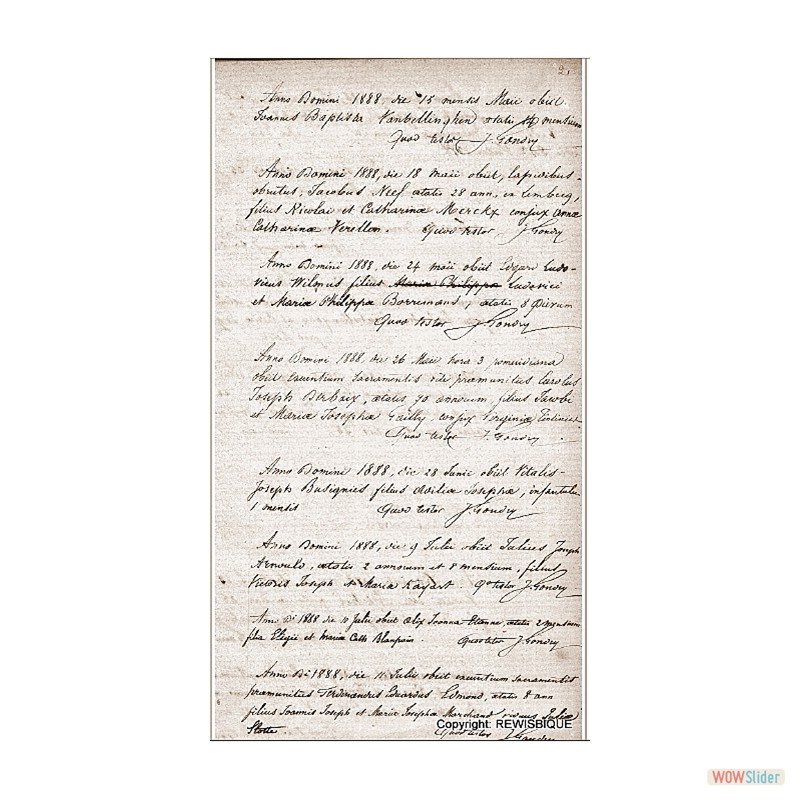 2.
Anno Domini 1888, die 15 mensis Maii obiit
Joannis Baptista Vanbellinghen aetatis mensium
Quod testor J. Gondry
Anno Domini 1888, die 18 maii obiit, lapidibus
obrutus, Jacobus Neef aetatis 28 ann, in Lemberg,
filius Nicolai et Catharinae Merckx conjux Annae
Catharinae Verellon. Quod testor J. Gondry
Anno Domini 1888, die 24 maii obiit Edgard Ludo-
vicus Wilmus filius Maria Philippa Ludovici
et Maria Philippa Borremans, aetatis 8 dierum
Quod testor J. Gondry
Anno Domini 1888, die 26 Maii hora 3 pomeridiana
obiit exeuntium Sacramentis rite praemunitus Carolus
Joseph Derbaix, aetatis 70 annorum, filius Jacobi
et Mariae Josepha Gailly, conjux Virginiae
Quod testor J. Gondry
Anno Domini 1888, die 28 Junii obiit Vitalis-
Joseph Busignies filius Josepha, infantulus
1 mensis Quod testor J. Gondry
Anno Domini 1888, die 9 Julii obiit Julius Joseph
Arnould, aetatis 2 annorum et 8 mensium, filius
Victoris Joseph et Maria Kayart Q testor J. Gondry
Anno Di 1888 die 10 Julii obiit Alix Joanna Etienne, aetatis 2 mensium
filia Elegie et Maria Cath Blanpain. Quod testor J. Gondry
Anno Di 1888, die 11 Julii obiit exeuntium sacramentis
praemunitus Ferdinandus Eduardus Edmond, aetatis 8 ann
filius Joannis Joseph et Maria Josepha Marchand, viduus Julia
Stotte. Quod testor J. Gondry
Copyright: REWISBIQUE
WOWSlider